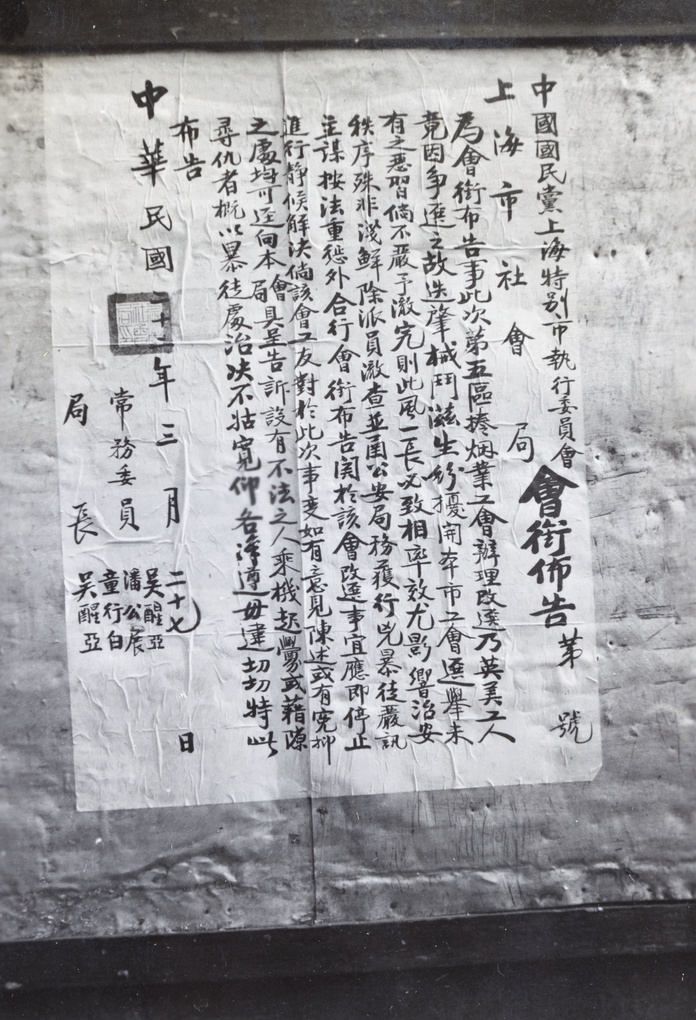 中國國民黨上海特別市執行委員會
上海市社會局
會銜佈告第 號
為會銜布告事此次第五區捲烟業工會辦理改選乃英美工人
竟因爭選之故迭肇械鬥滋生紛擾開本市工會選舉未
有之惡習倘不嚴予澈究則此風一長必致相率效尤影響治安
秩序殊非淺鮮除派員澈查並函公安局務獲行兇暴徒嚴訊
主謀按法重懲外合行會銜布告関於該會改選事宜應即停止
進行靜候解決倘該會工友對於此次事变如有意見陳述或有寃抑
之處均可逕向本會局具呈告訴設有不法之人乘機起釁或藉隙
尋仇者概以暴徒處治决不姑寬仰各凜遵毋違切切特此
布告
中華民國二十 年三月二十七日
常務委員 吳醒亞 潘公展 童行白
局長 吳醒亞